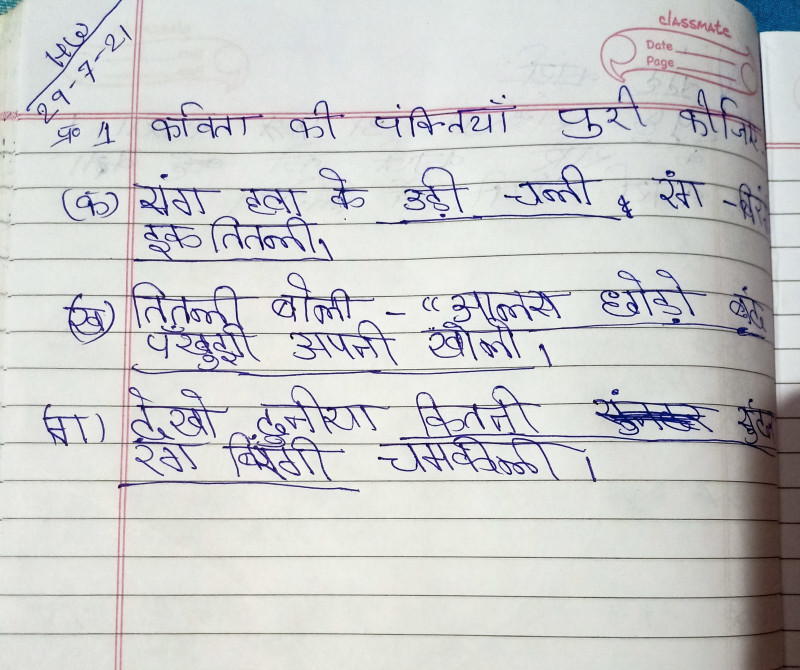 HW
29-7-21
classmate
Date
Page
प्र० 1 कविता की पंक्तियाँ पुरी कीजिए
(क) संग हवा के उड़ी चली रंग -बिरं
इक तितली,
(ख) तितली बोली - "आलस छोड़ो बंद
पँखुड़ी अपनी खोलो,
(ग) देखो दुनीया कितनी सुंदर
रंग बिरंगी चमकीली।